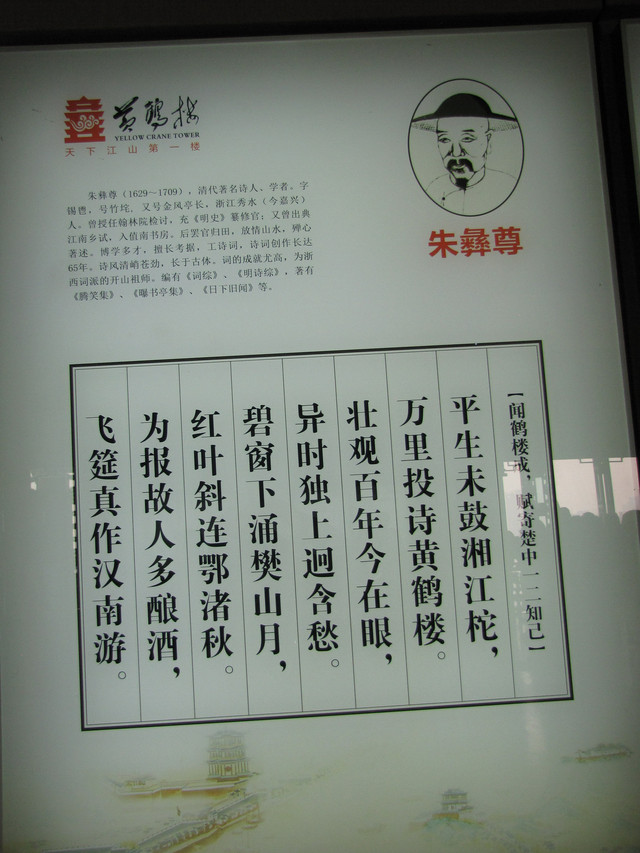 黄鹤楼
YELLOW CRANE TOWER
天下江山第一楼
朱彝尊（1629～1709），清代著名诗人、学者。字
锡鬯，号竹垞，又号金风亭长，浙江秀水（今嘉兴）
人。曾授任翰林院检讨，充《明史》纂修官；又曾出典
江南乡试，入值南书房。后罢官归田，放情山水，殚心
著述。博学多才，擅长考据，工诗词，诗词创作长达
65年。诗风清峭苍劲，长于古体。词的成就尤高，为浙
西词派的开山祖师。编有《词综》、《明诗综》，著有
《腾笑集》、《曝书亭集》、《日下旧闻》等。
朱彝尊
【闻鹤楼成，赋寄楚中一二知己】
平生未鼓湘江柁，
万里投诗黄鹤楼。
壮观百年今在眼，
异时独上迥含愁。
碧窗下涌樊山月，
红叶斜连鄂渚秋。
为报故人多酿酒，
飞筵真作汉南游。